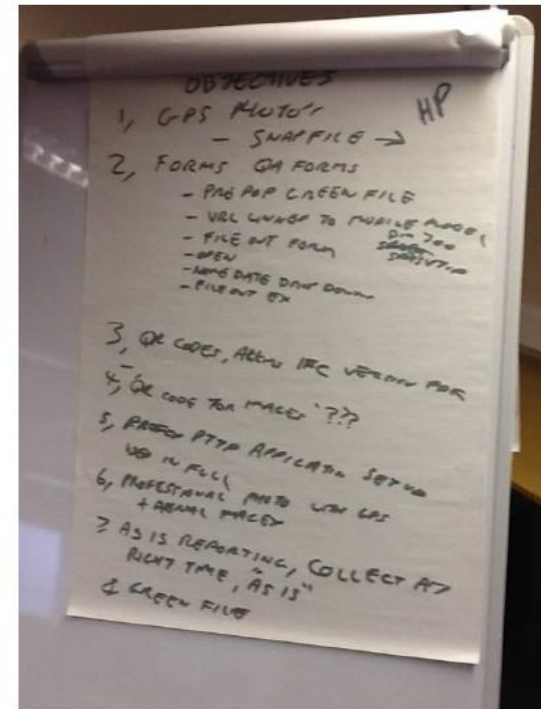 OBJECTIVES
HP
1, GPS PHOTO'S
- SNAPFILE →
2, FORMS QA FORMS
- PRE POP GREEN FILE
- URL LINKED TO MOBILE MODEL
- FILE OUT FORM
- OPEN
- NAME DATE DROP DOWNS
- FILE OUT EX
3, QR CODES, IFC VERSION FOR
4, QR CODE FOR IMAGES ???
5, APPLICATION SETUP
USED IN FULL
6, PROFESSIONAL PHOTO WITH GPS
+ AERIAL IMAGES
7 AS IS REPORTING, COLLECT AT
RIGHT TIME, "AS IS"
8 GREEN FILE